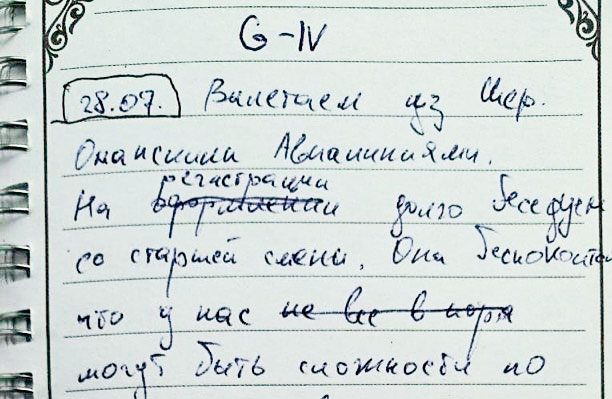 G-IV
28.07. Вылетаем из Шер.
Оманскими Авиалиниями.
регистрации
На оформлении долго беседуем
со старшей смены. Она беспокоится
что у нас не все в поря
могут быть сложности по